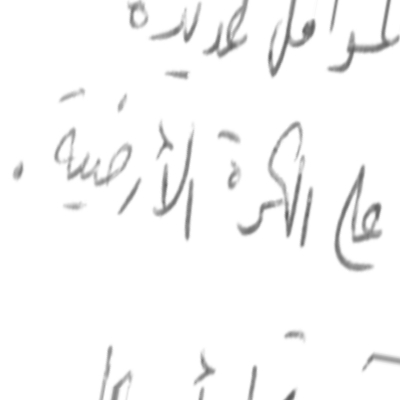 لعوامل عديدة
على الكرة الأرضية .